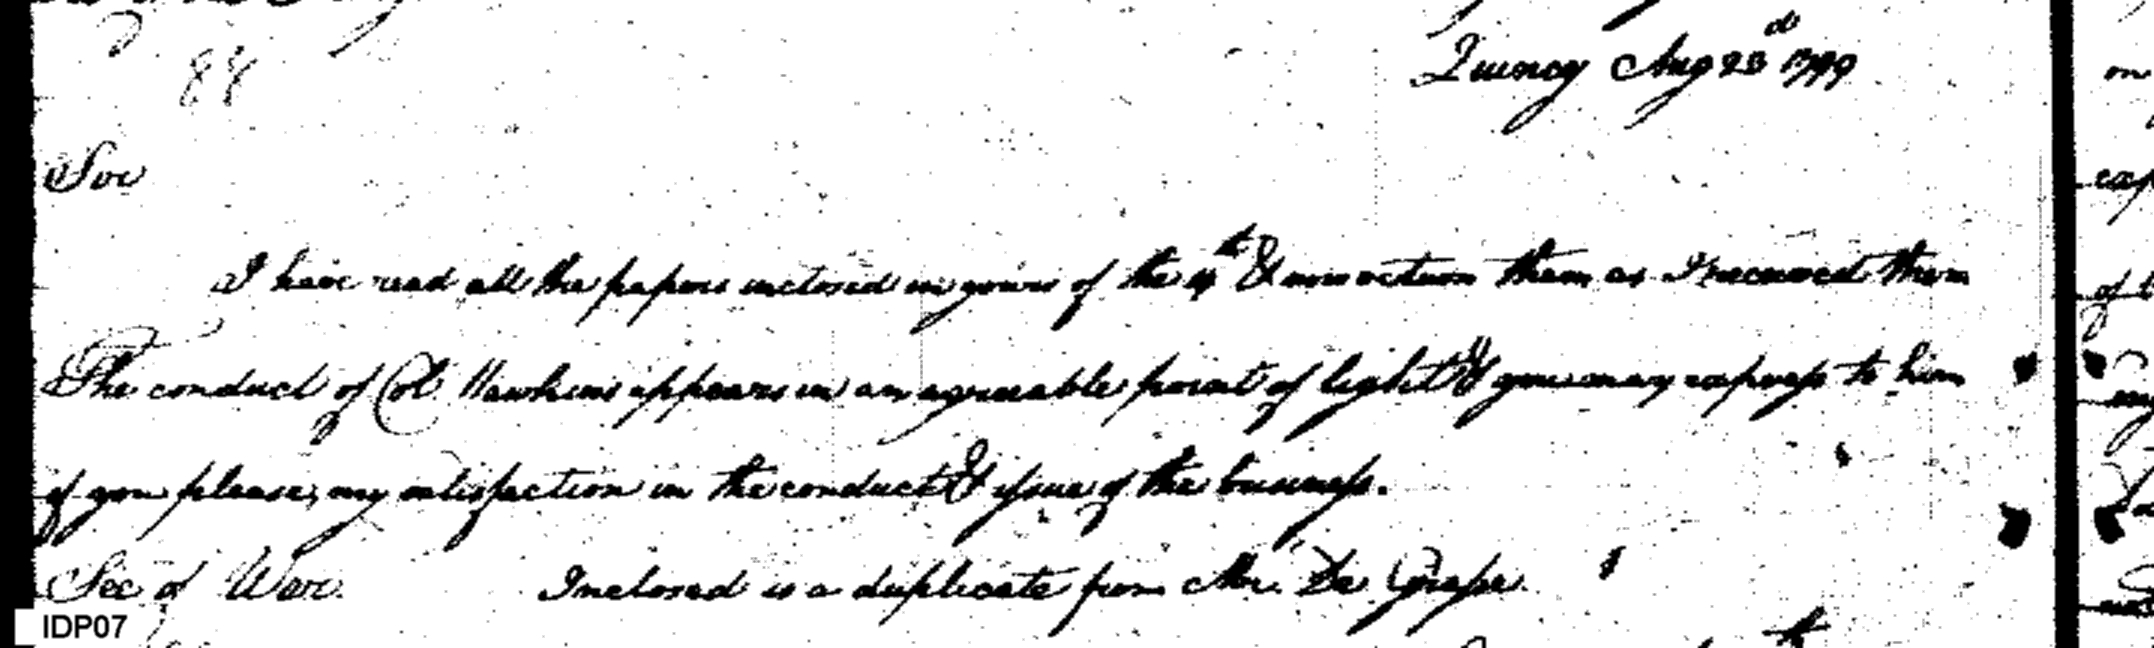 88
Quincy Aug 23d 1799
Sir
I have read all the papers inclosed in yours of the 4th & now return them as I received them
The conduct of Col. Hawkins appears in an agreeable point of light & you may express to him
if you please, my satisfaction in the conduct & issue of the business.
Sec of War. Inclosed is a duplicate from Mr. De Grasse.
IDP07